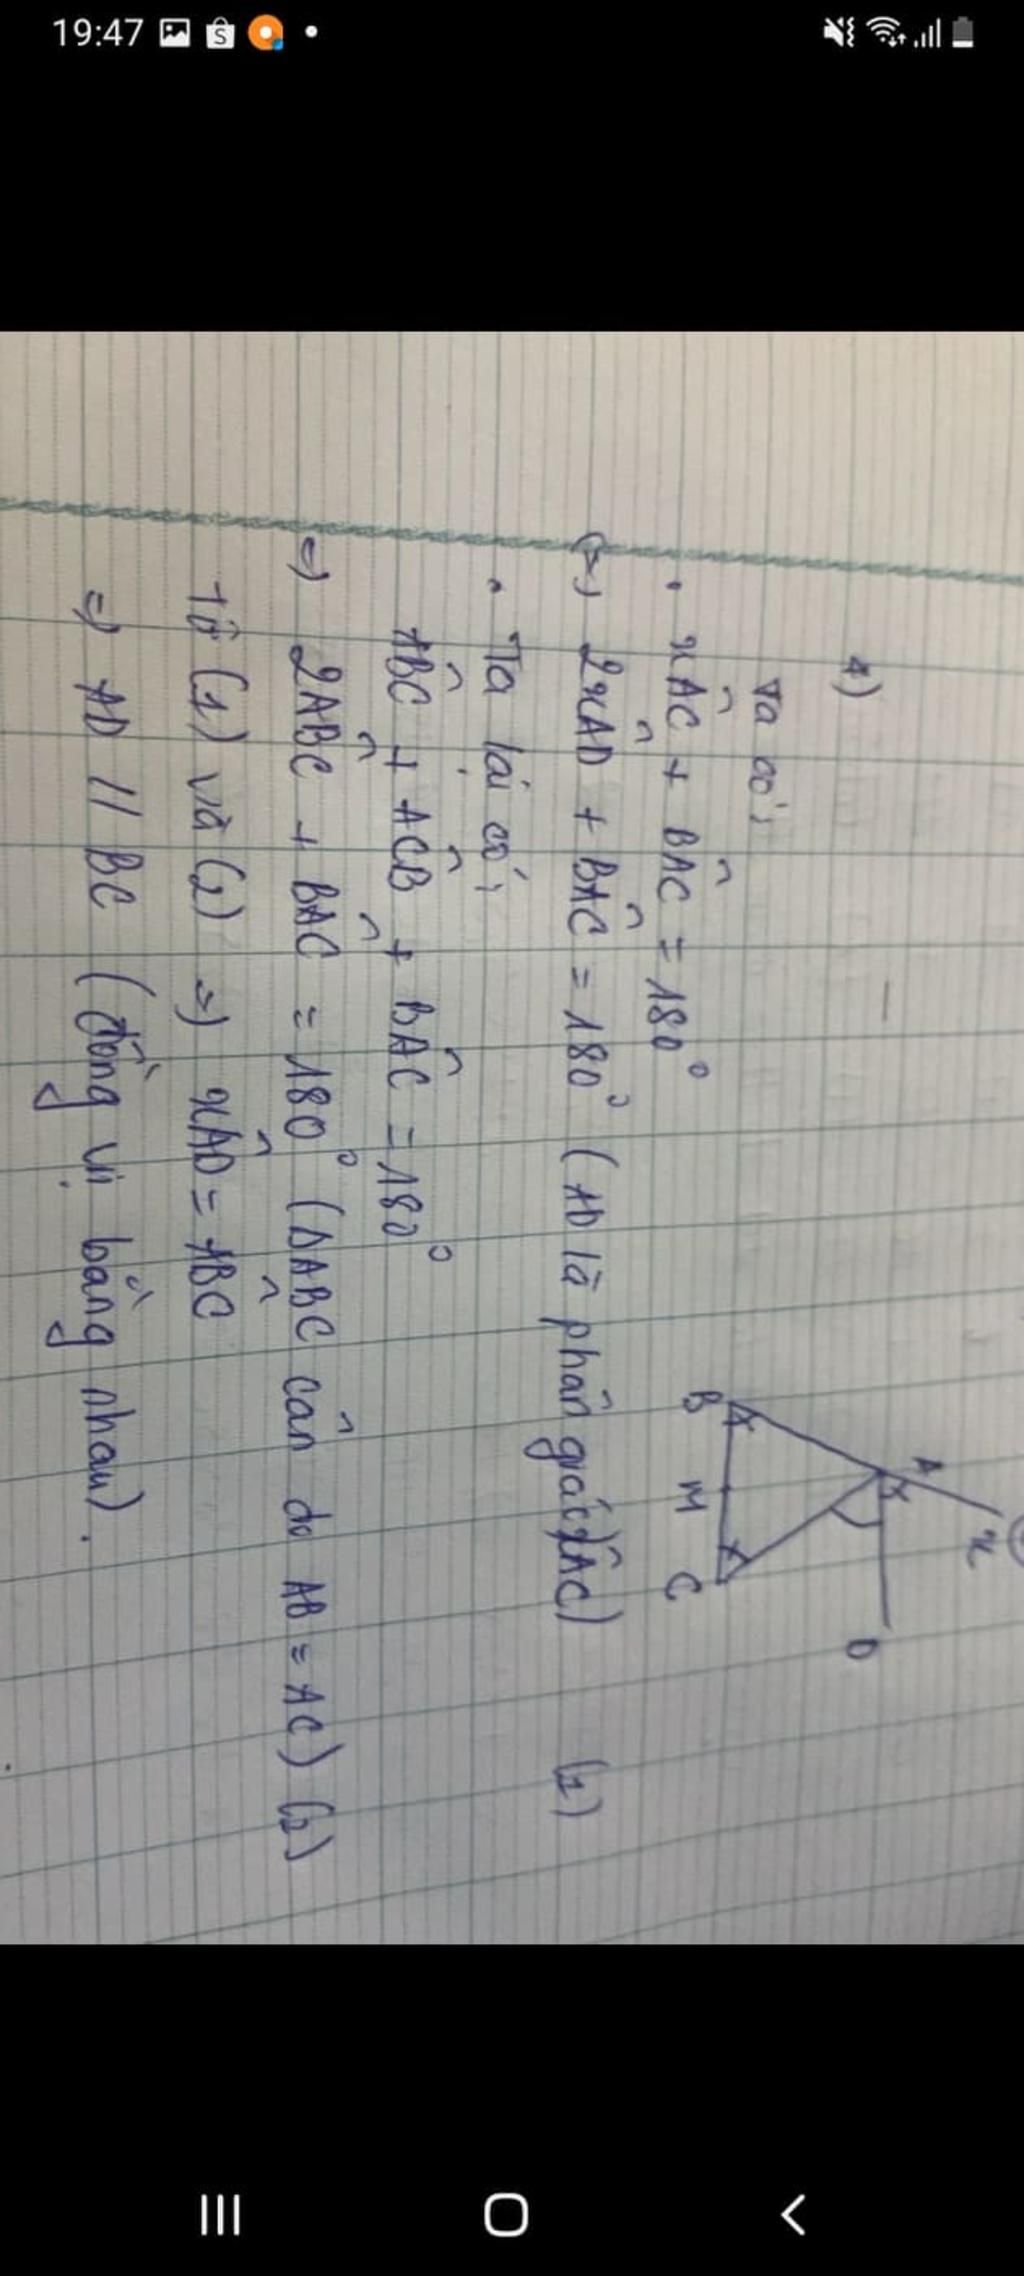 19:47
4)
Ta có:
• xÂC + BÂC = 180°
(=) 2xÂD + BÂC = 180° (AD là phân giác xÂC) (1)
• Ta lại có:
AB̂C + AĈB + BÂC = 180°
=) 2AB̂C + BÂC = 180° (ΔABC cân do AB = AC) (2)
Từ (1) và (2) =) xÂD = AB̂C
=) AD // BC (đồng vị bằng nhau).
x
A
D
B M C